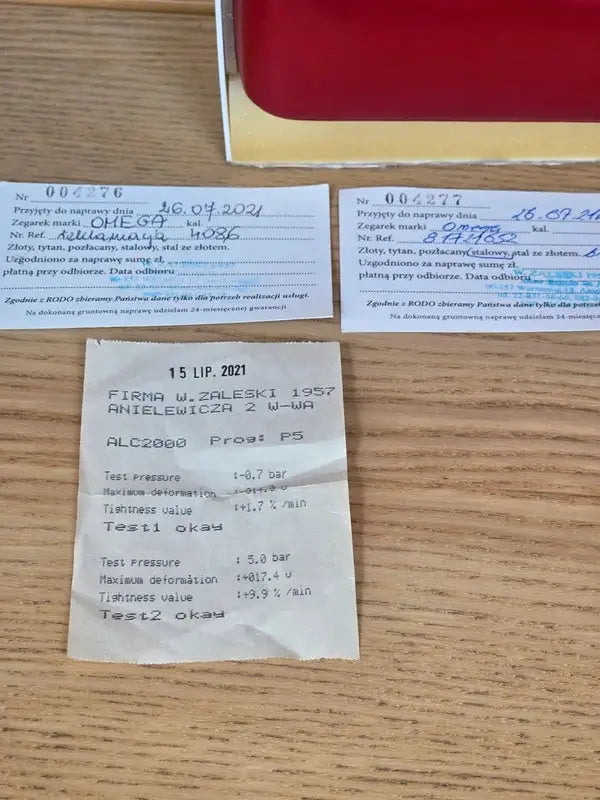 Nr 004276
Przyjęty do naprawy dnia 26.07.2021
Zegarek marki OMEGA kal.
Nr. Ref. reklamacja 4086
Złoty, tytan, pozłacany, stalowy, stal ze złotem.
Uzgodniono za naprawę sumę zł.
płatną przy odbiorze. Data odbioru
Zgodnie z RODO zbieramy Państwa dane tylko dla potrzeb realizacji usługi.
Na dokonaną gruntowną naprawę udzielam 24-miesięcznej gwarancji
Nr 004277
Przyjęty do naprawy dnia 26.07.21
Zegarek marki Omega kal.
Nr. Ref.
Złoty, tytan, pozłacany, stalowy, stal ze złotem.
Uzgodniono za naprawę sumę zł.
płatną przy odbiorze. Data odbioru
W.ZALESKI
Zgodnie z RODO zbieramy Państwa dane tylko dla potrzeb
Na dokonaną gruntowną naprawę udzielam 24-miesięcznej
15 LIP. 2021
FIRMA W.ZALESKI 1957
ANIELEWICZA 2 W-WA
ALC2000 Prog: P5
Test pressure :-0.7 bar
Maximum deformation
Tightness value :+1.7 % /min
Test1 okay
Test pressure : 5.0 bar
Maximum deformation :+017.4 u
Tightness value :+9.9 % /min
Test2 okay